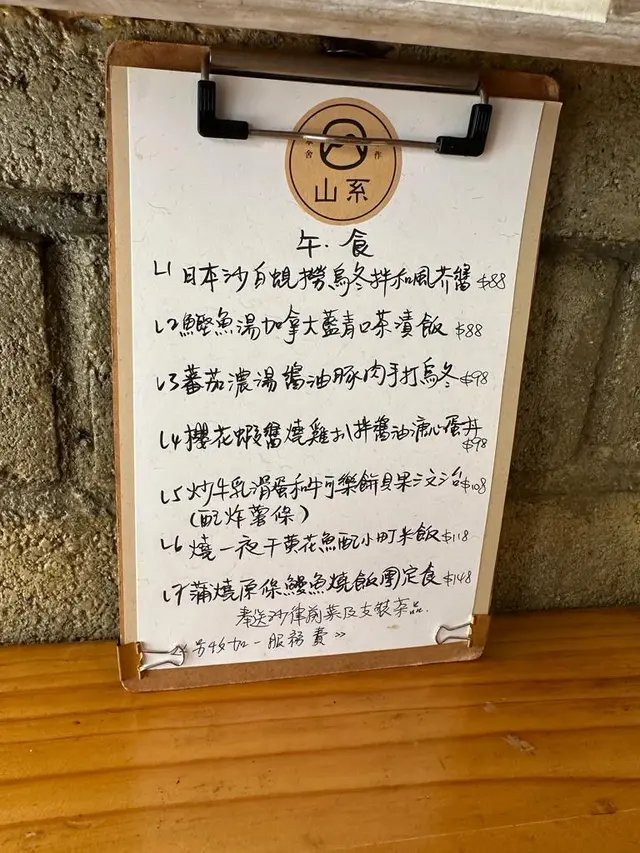 舍 作
山系
午.食
L1 日本沙白蜆撈烏冬拌和風芥醬 $88
L2 鰹魚湯加拿大藍青口茶漬飯 $88
L3 蕃茄濃湯醬油豚肉手打烏冬 $98
L4 櫻花蝦醬燒雞扒拌醬油溏心蛋丼 $98
L5 炒牛乳滑蛋和牛可樂餅貝果文治 $108
(配炸薯條)
L6 燒一夜干黄花魚配小町米飯 $118
L7 蒲燒原條鰻魚燒飯團定食 $148
奉送沙律前菜及支裝茶品.
另收加一服務費 »